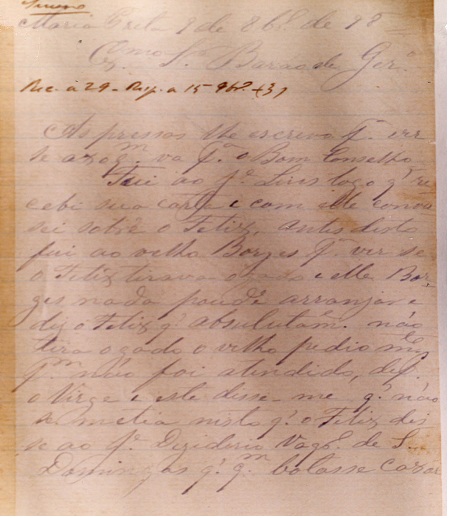 Maria Preta 9 de 8br.º de 98
Exmo Sr. Barão de Ger.º
Rec. a 29 - Resp. a 15 9br.º
As pressas lhe escrevo p.ª ver
se a q.m va p.ª o Bom Conselho
Fui ao p.e Lives logo q.' re
cebi sua carta e com elle conver
sei sobre o Felix, antes disto
fui ao velho Borges p.ª ver se
o Felix tirava o gado e elle Bor-
ges nada poude arranjar e
diz o Felix q.' absolutam.te não
tira o gado o velho pedio m.to
p.m não foi atendido,
o Virge e este disse-me q.' não
se metia nisto q.' o Felix dis
se ao p.e Deziderio Vag.º de S.
Domingos q.' q.m botasse